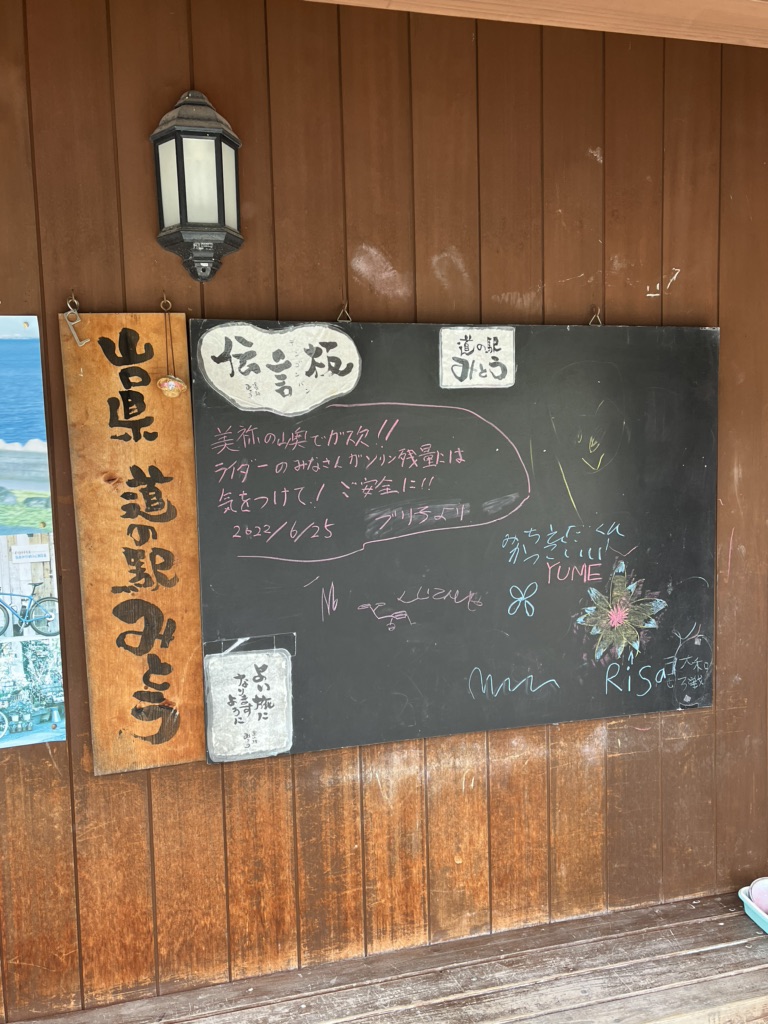 山口県 道の駅 みとう
伝言板
デンゴンバン
道の駅
みとう
美祢の山奥でガス欠!!
ライダーのみなさんガソリン残量には
気をつけて! ご安全に!!
2022/6/25
ブリ子より
かっこいい
YUME
Risa
よい旅に
なりますように